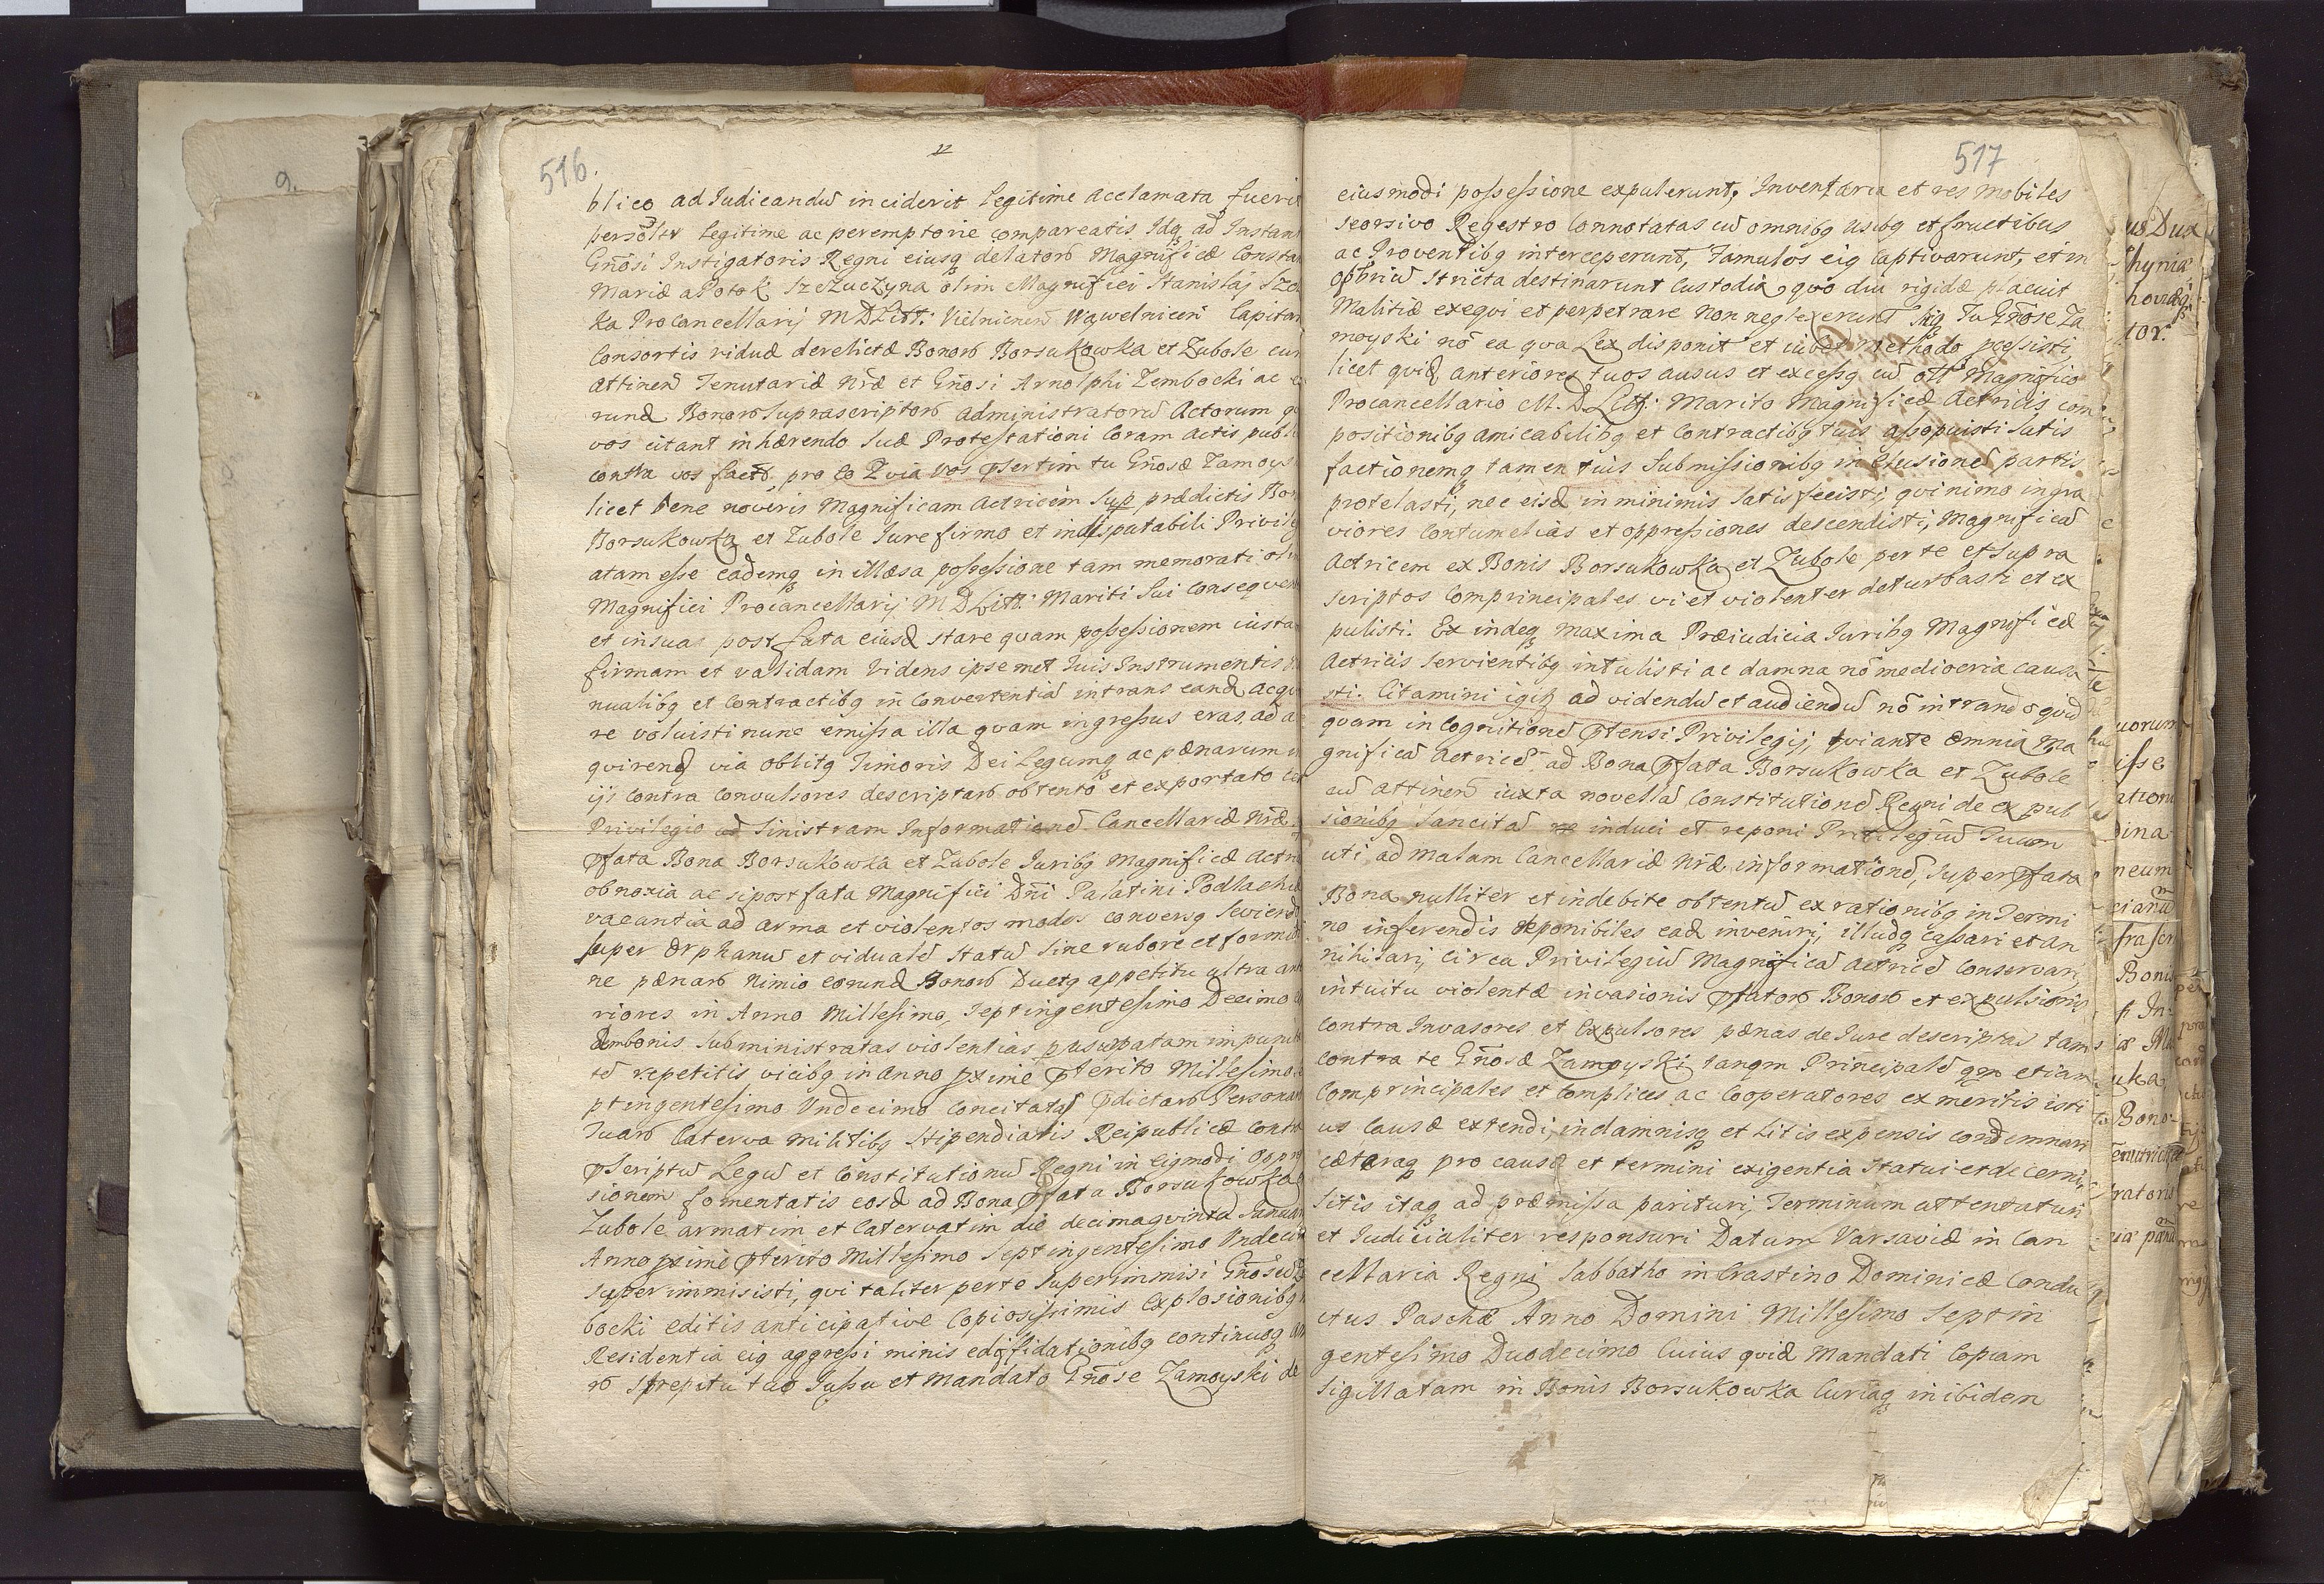 516.
blico ad Iudicandū inciderit legitime acclamata fueri
persōltr legitime ac peremptorie compareatis Idq ad Instan
Gnōsi Instigatoris Regni eiusq delatorō Magnificæ Constan
Mariæ a Potok Szczuczyna olim Magnifici Stanislaj Szcz
ka Procancellarij M D Litt: Vielnicen Wąwelnicen Capitan
Consortis viduæ derelictæ Bonorō Borsukowka et Zubole cum
attinen Tenutariæ nræ et Gnōsi Arnolphi Zembocki ac e
rund Bonorō Suprascriptorō administratorū Actorum q
vos citant inhærendo Suæ Protestationi Coram Actis publi
contra vos factæ, pro eo Quia vos ptsertim tu Gnōsæ Zamoys
licet bene noveris Magnificam Actricem Sup prædictis Bon
Borsukowka et Zubole Iure firmo et indisputabili Privileg
atam esse eademq in illæsa possessione tam memorati oli
Magnifici Procancellarij M D Litt: Mariti Sui conseqven
et in sua post fata eiusd stare qvam possessionem iusta
firmam et validam Videns ipsemet Tuis Instrumentis
nualibq et Contractibq in Convertentiā intrans eand acqvi
re voluisti nunc emissa illa qvam ingressus eras, ad a
qvirend via oblitq Timoris Dei Legumq ac pænarum
ijs contra Convulsores descriptarō obtento et exportato
Privilegio ad Sinistram Informationē Cancellariæ nræ
pfata Bona Borsukowka et Zubole Iuribq Magnificæ Actri
obnoxia ac si post fata Magnifici Dni Palatini Podlachiæ
vacantia ad arma et violentos modos conversq Seviend
super Orphanū et vidualē Statū Sine rubore et formidi
ne pænarō nimio eorund Bonorō Ductq appetitu ultra an
riores in Anno Millesimo, Septingentesimo Decimo
Dembonis Subministratas violentias
te repetitis vicibq in anno pxime pterito Millesimo
ptingentesimo Vndecimo Concitatas pdictarō Personar
Tuarō Caterva militibq Stipendiatis Reipublicæ contra
pscriptū Legū et Constitutionū Regni in eiqmodi oppr
sionem fomentatis eosd ad Bona pfata Borsukowka
Zubole armatim et Catervatim die decimaqvinta Ianuar
Anno pxime pterito Millesimo Septingentesimo Vndeci
Superimmisisti, qvi taliter per te Superimmisi Gnōse Z
bocki editis anticipative Copiosissimis Explosionibq
Residentiā eiq aggressi minis ed diffidationibq continuosq
rō Strepitu tuo Iussu et Mandato Gnōse Zamoyski de
517
eiusmodi possessione expulerunt, Inventaria et res mobiles
seorsivo Regestro Connotatas cū omnibq usibq et fructibus
ac Proventibq interceperunt, Famulos eiq Captivarunt, et in
opbriū Stricta destinarunt Custodia, quō diu rigidæ placuit
Malitiæ exeqvi et perpetrare non neglexerunt Tu Gnōse Za
moyski nō ea qva Lex disponit et iubet methodo pcessisti
licet qvid anteriores tuos ausus et excessq cū ott Magnifico
Procancellario M. D. Litt: Marito Magnificæ Actricis com
positionibq amicabilibq et Contractibq tuis assopuisti Satis
factionemq tamen tuis Submissionibq in elusionē partis
protelasti, nec eisd in minimis Satisfecisti, qvinimo in gra
viores Contumelias et oppressiones descendisti, Magnificā
Actricem ex Bonis Borsukowka et Zubole per te et Supra
scriptos Comprincipales vi et violenter deturbasti et ex
pulisti. Ex indeq maxima Præiudicia Iuribq Magnificæ
Actricis Servientibq intulisti ac damna nō mediocria causa
sti. Citamini igiṛ ad videndū et audiendū nō intrando qvid
qvam in Cognitionē ptensi Privilegij, qvi ante omnia Ma
gnificā Actricē ad Bona pfata Borsukowka et Zubole
cū attinen iuxta novellā Constitutionē Regni de expul
sionibq Sancitā induci et reponi Privilegiū Tuum
uti ad malam Cancellariæ nræ informationē, Super pfata
Bona nulliter et indebite obtentū ex rationibq in Termi
no inferendis reponibiles ead inveniri, illudq cassari et an
nihilari, circa Privilegiū Magnificā Actricē Conservari,
intuitu violentæ invasionis pfatorō Bonorō et expulsionis
contra Invasores et Expulsores pænas de Iure descriptas tam
contra te Gnōsæ Zamoyski tanqm Principalē qm etiam
Comprincipales et Complices ac Cooperatores ex meritis isti
us Causæ extendi, in damnisq et Litis expensis condemnari
cæteraq pro causæ et termini exigentia Statui et decerni,
Sitis itaq ad præmissa parituri, Terminum attentaturi
et Iudicialiter responsuri Datum Varsaviæ in Can
cellaria Regni Sabbatho in Crastino Dominicæ Condu
ctus Paschæ Anno Domini Millesimo Septin
gentesimo Duodecimo Cuius qvid Mandati Copiam
Sigillatam in Bonis Borsukowka Curiaq inibidem